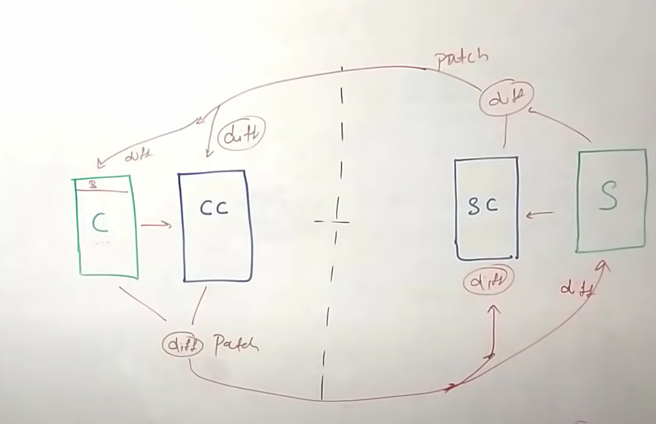 patch
diff
diff
diff
S
C
CC
SC
S
diff
diff
diff
Patch